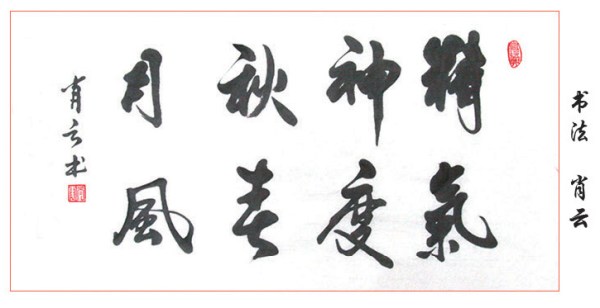 精神秋月
氣度春風
肖云
书法 肖云